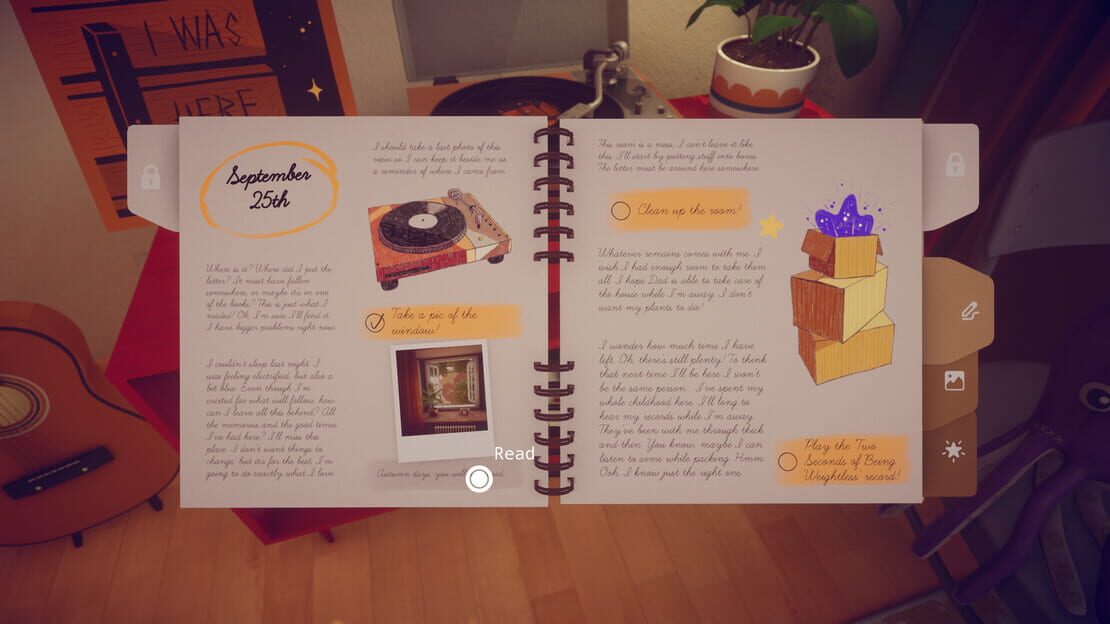 I WAS
HERE
September
25th
Where is it? Where did I put the
letter? It must have fallen
somewhere, or maybe it's in one
of the books? This is just what I
needed! Oh, I'm sure I'll find it.
I have bigger problems right now.
I couldn't sleep last night. I
was feeling electrified, but also a
bit blue. Even though I'm
excited for what will follow, how
can I leave all this behind? All
the memories and the good times
I've had here? I'll miss this
place. I don't want things to
change, but it's for the best. I'm
going to do exactly what I love.
I should take a last photo of this
view so I can keep it beside me as
a reminder of where I came from.
Take a pic of the
window!
Read
Autumn days, you will
This room is a mess. I can't leave it like
this. I'll start by putting stuff into boxes.
The letter must be around here somewhere.
Clean up the room!
Whatever remains comes with me. I
wish I had enough room to take them
all. I hope Dad is able to take care of
the house while I'm away. I don't
want my plants to die!
I wonder how much time I have
left. Oh, there's still plenty! To think
that next time I'll be here I won't
be the same person... I've spent my
whole childhood here. I'll long to
hear my records while I'm away.
They've been with me through thick
and thin. You know, maybe I can
listen to some while packing. Hmm.
Ooh, I know just the right one.
Play the 'Two
Seconds of Being
Weightless' record!